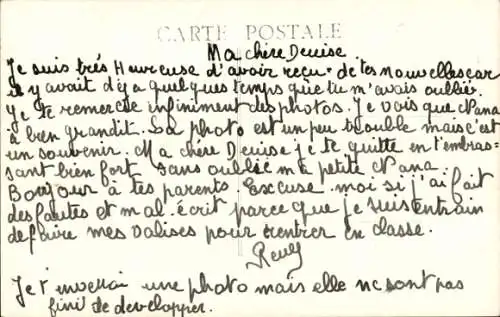 CARTE POSTALE
Ma chère Denise
Je suis très Heureuse d'avoir reçu de tes nouvelles car
il y avait d'éja quelques temps que tu m'avais oublier.
Je te remercie infiniment des photos. Je vois que Nana
à bien grandit. La photo est un peu trouble mais c'est
un souvenir. Ma chère Denise je te quitte en t'embras-
sant bien fort sans oublié ma petite Nana.
Bonjour à tes parents. Excuse moi si j'ai fait
des fautes et mal écrit parce que je suis entrain
de faire mes valises pour rentrer en classe.
Je t' une photo mais elle ne sont pas
fini de developper.